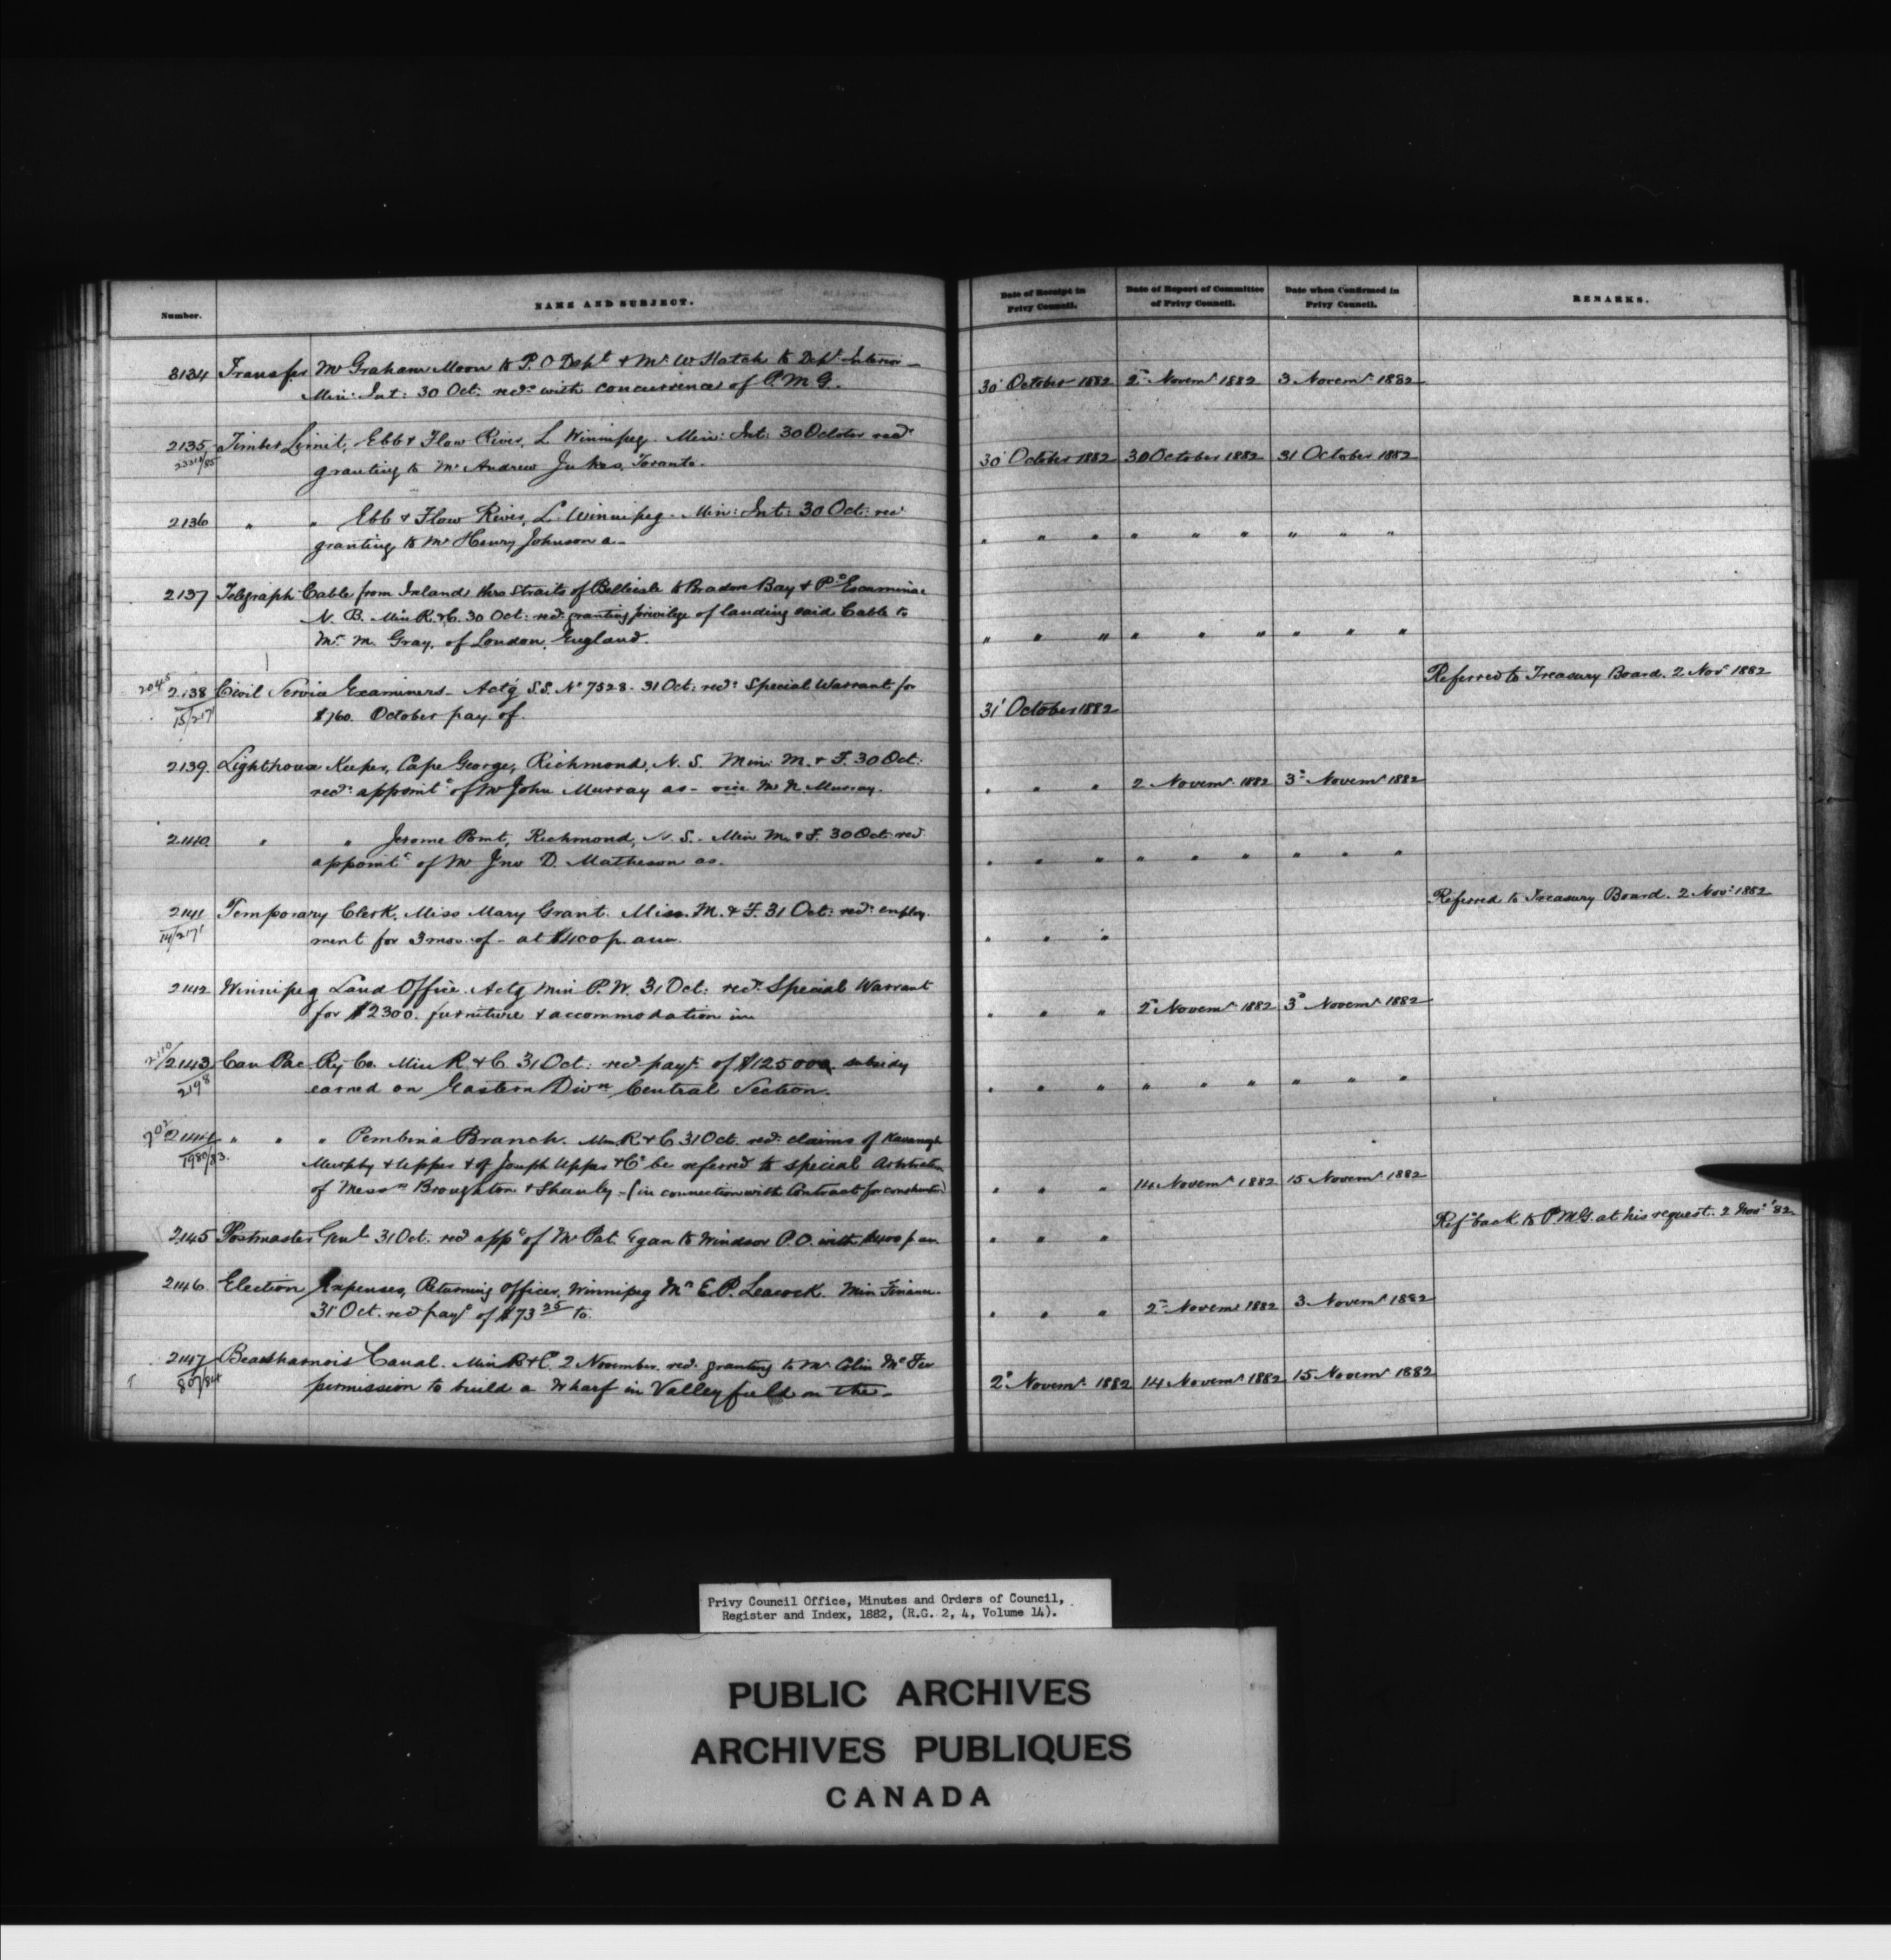 Number.
NAME AND SUBJECT.
Date of Receipt in Privy Council.
Date of Report of Committee of Privy Council.
Date when Confirmed in Privy Council.
REMARKS.
3134 Transfer Mr Graham Moon to P.O Dept & Mr W Hatch to Dept Interior –
Min: Int: 30 Oct: recd with concurrence of P.M.G.
30 October 1882 2d Novemr 1882 3 Novemr 1882
2135 Timber Limit, Ebb & Flow River, L Winnipeg. Min: Int: 30 October recd
granting to Mr Andrew Jukes, Toronto.
30 October 1882 30 October 1882 31 October 1882
2136 " " Ebb & Flow River, L. Winnipeg. Min: Int: 30 Oct: recd
granting to Mr Henry Johnson a –
" " " " " " " " "
2137 Telegraph Cable from Ireland thro Straits of Belleisle to Bradore Bay & Po Escuminac
N. B. Min R.&C. 30 Oct: recd granting privilege of landing said Cable to
Mr. M. Gray, of London, England.
" " " " " " " " "
2045 2138 Civil Service Examiners – Actg S.S. No 7528. 31 Oct: recd Special Warrant for
15/217 $760. October pay of.
31 October 1882
Referred to Treasury Board. 2 Nov 1882
2139. Lighthouse Keeper, Cape George, Richmond, N. S. Min: M. & F. 30 Oct:
recd appointt of Mr John Murray as – vice Mr N. Murray.
" " " 2 Novemr 1882 3d Novemr 1882
2140 " " Jerome Point, Richmond, N. S. – Min M. & F. 30 Oct recd
appointt of Mr Jno D. Matheson as.
" " " " " " " " "
2141 Temporary Clerk, Miss Mary Grant. Min. M. & F. 31 Oct: recd employ-
14/217 ment for 3 mos. of – at $400 p. ann.
" " "
Referred to Treasury Board. 2 Nov: 1882
2142 Winnipeg Land Office. Actg Min P.W. 31 Oct: recd Special Warrant
for $2300. furniture & accommodation in
" " " 2d Novemr 1882 3d Novemr 1882
2110 2143 Can Pac Ry Co. Min R & C 31 Oct: recd payt of $125000 subsidy
2198 earned on Eastern Divn Central Section.
" " " " " " " " "
702 2144 " " " Pembina Branch. Min R & C 31 Oct. recd claims of Kavanagh
1980/83. Murphy & Upper & of Joseph Upper & Co be referred to special Arbitration
of Messrs Broughton & Shanly – (in connection with Contract for construction)
" " " 14 Novemr 1882 15 Novemr 1882
2145 Postmaster Genl 31 Oct. recd appt of Mr Pat Egan to Windsor P.O. with $400 p an.
" " "
Refd back to P.M.G. at his request. 2 Nov '82
2146 Election Expenses, Returning Officer, Winnipeg Mr E.P. Leacock. Min Finance.
31 Oct. recd payt of $73 25 to.
" " " 2d Novemr 1882 3 Novemr 1882
2147 Beauharnois Canal. Min R & C. 2 November. recd granting to Mr Colin McFee
807/84 permission to build a Wharf in Valleyfield on the –
2d Novemr 1882 14 Novemr 1882 15 Novemr 1882
Privy Council Office, Minutes and Orders of Council,
Register and Index, 1882, (R.G. 2, 4, Volume 14).
PUBLIC ARCHIVES
ARCHIVES PUBLIQUES
CANADA